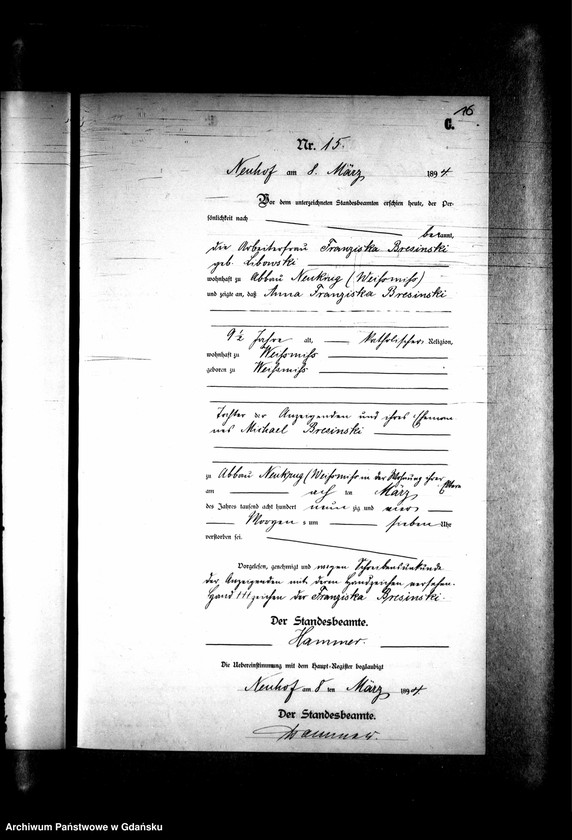 16
C.
Nr. 15.
Neuhof am 8. März 1894
Vor dem unterzeichneten Standesbeamten erschien heute, der Per-
sönlichkeit nach
bekannt,
die Arbeiterfrau Franziska Bresinski
geb. Libowski
wohnhaft zu Abbau Neukrug (Weißmiß)
und zeigte an, daß Anna Franziska Bresinski
9½ Jahre alt, Katholischer Religion,
wohnhaft zu
geboren zu
Tochter der Anzeigenden und ihres Eheman
nes Michael Bresinski
zu Abbau Neukrug in der Wohnung ihrer
am acht ten März
des Jahres tausend acht hundert neun zig und vier
Morgens um sieben Uhr
verstorben sei.
Vorgelesen, genehmigt und wegen Schreibensunkunde
der Anzeigenden mit deren Handzeichen versehen.
Hand ††† zeichen der Franziska Bresinski
Der Standesbeamte.
Hammer.
Die Uebereinstimmung mit dem Haupt-Register beglaubigt
Neuhof am 8 ten März 1894
Der Standesbeamte.
Hammer.
Archiwum Państwowe w Gdańsku